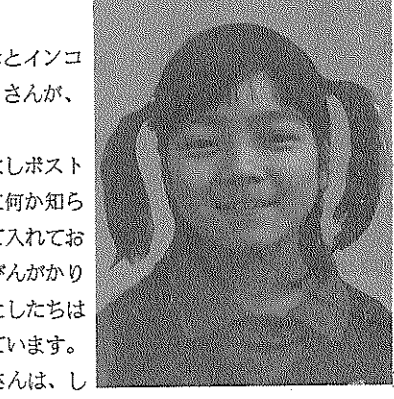 とインコ
さんが、
しポスト
何か知ら
て入れてお
がんがかり
としたちは
ています。
さんは、し